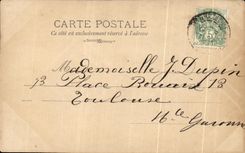 CARTE POSTALE
Ce côté est exclusivement réservé à l'adresse
5
Mademoiselle J. Dupin
13 Place Rouaix 13
Toulouse
Hte Garonne